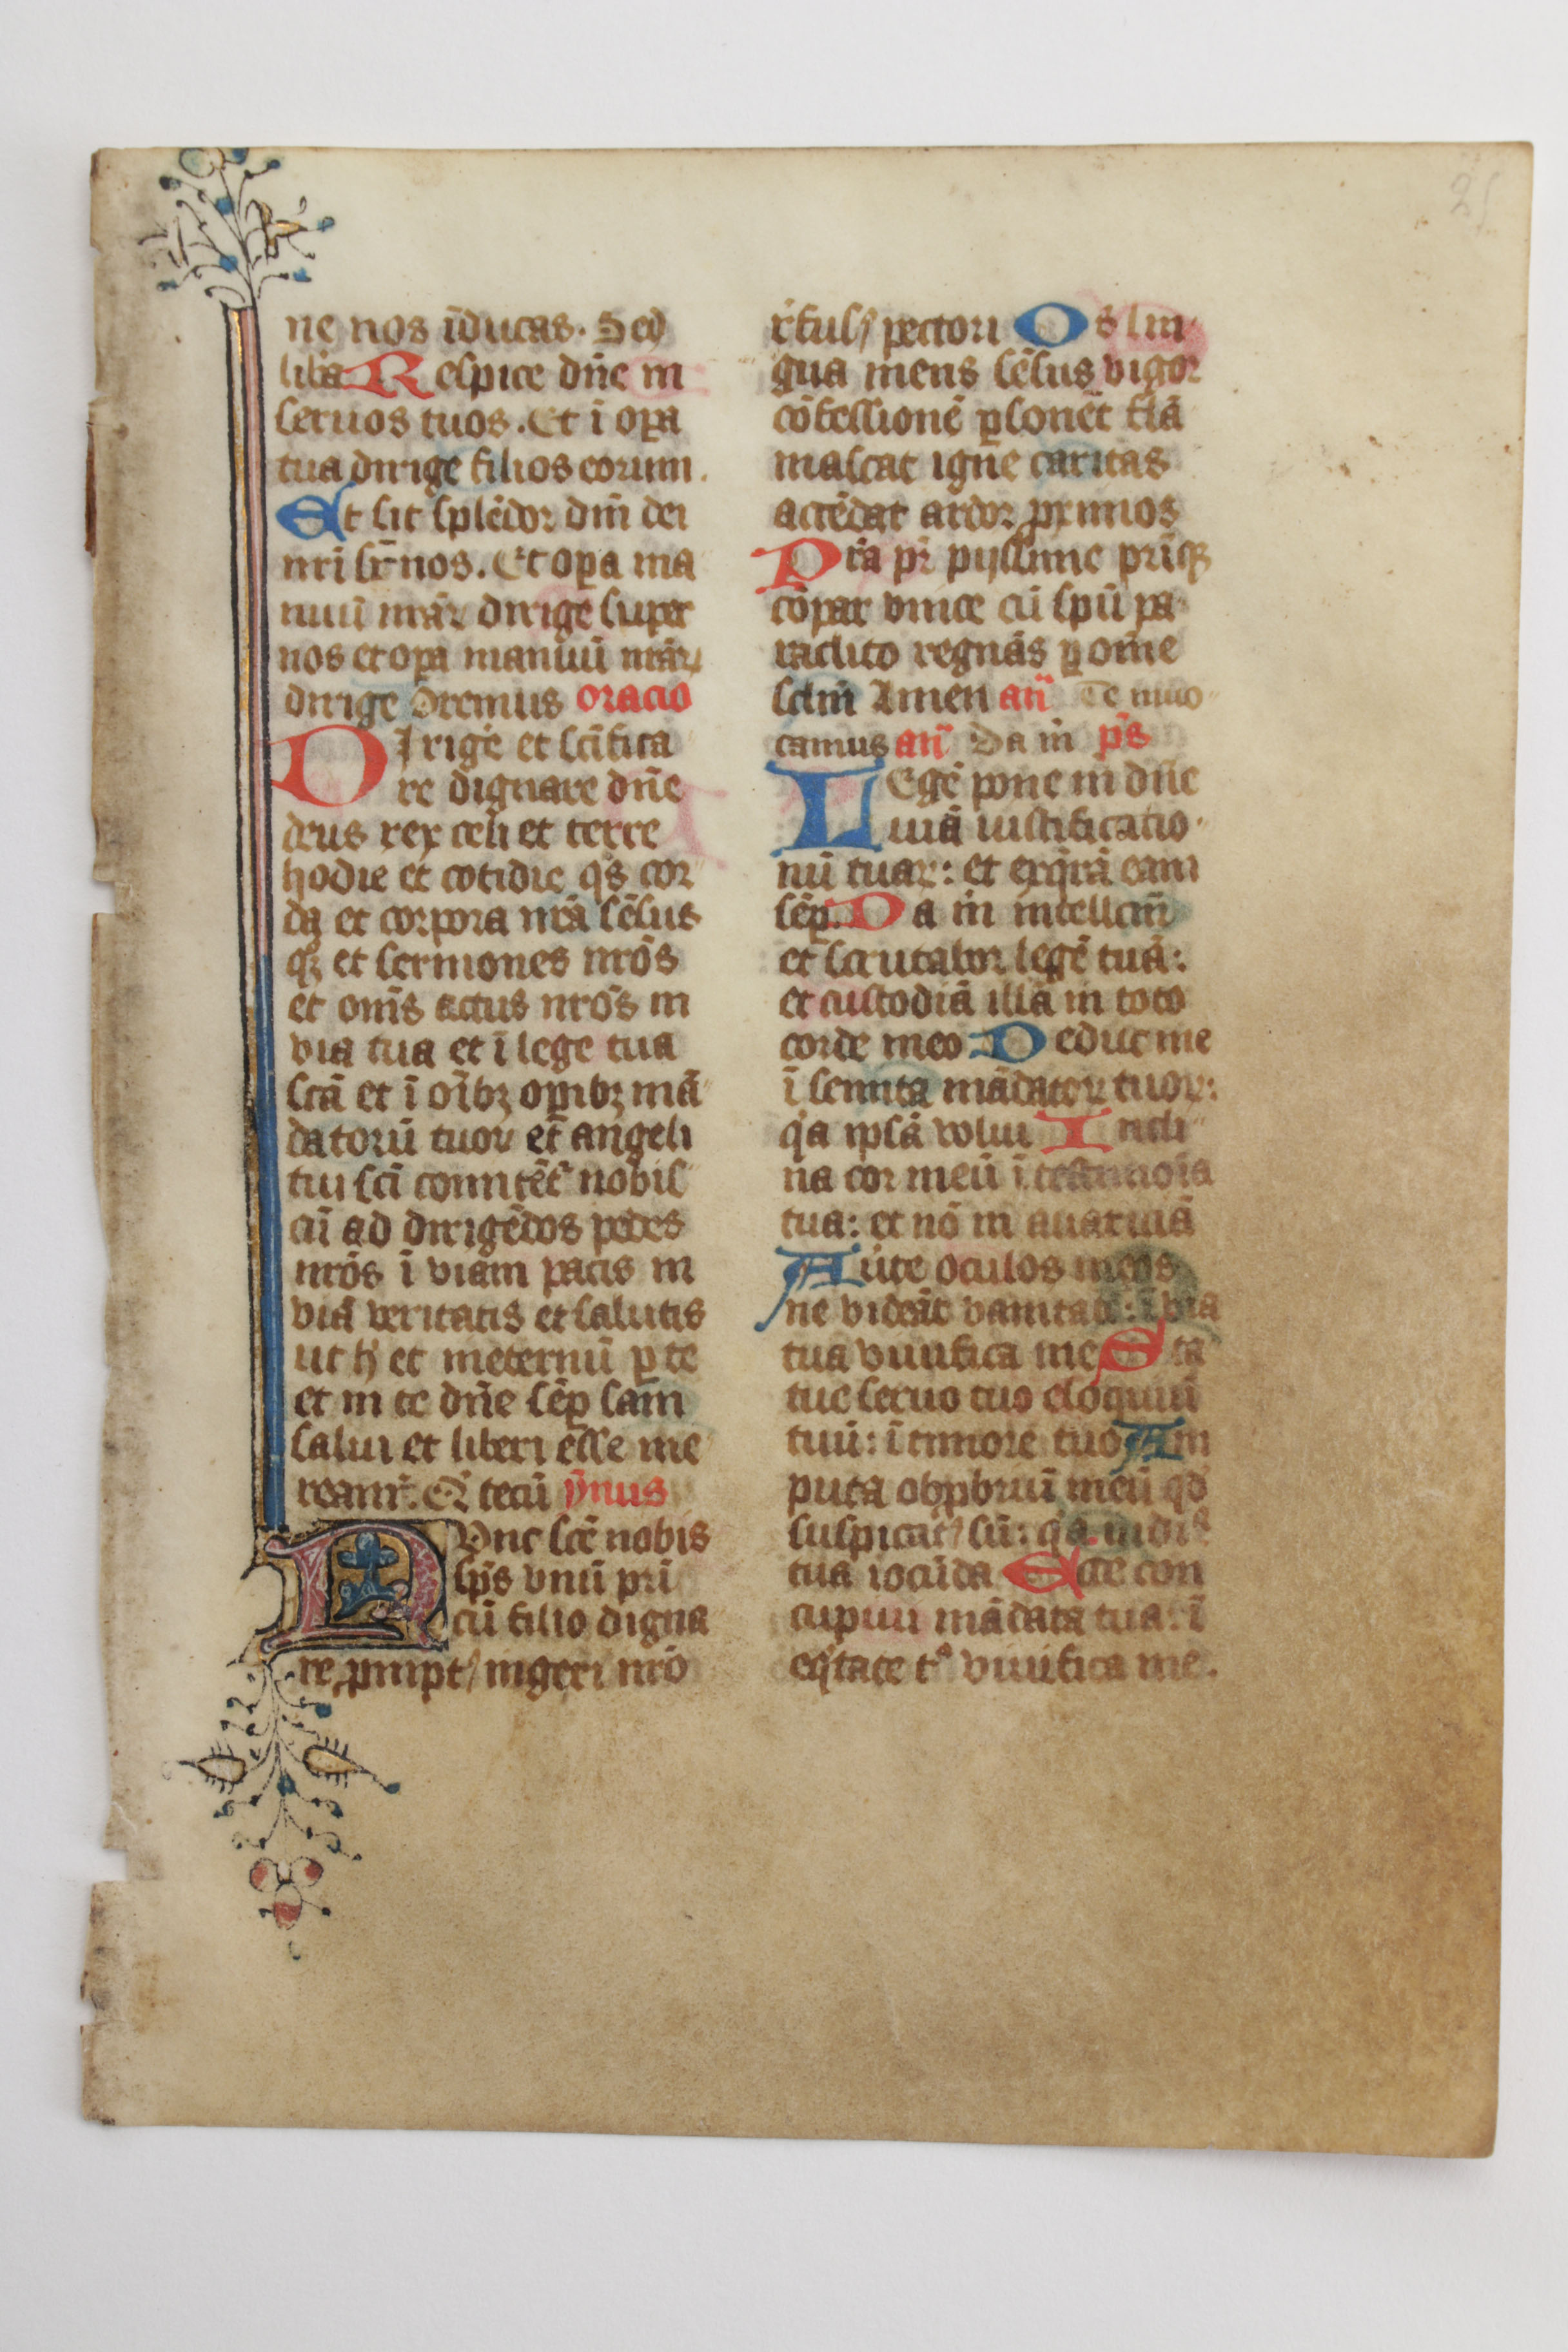 25
ne nos īducas. Sed
lib'a Respice dn̄e in
seruos tuos. Et ī opa
tua dirige filios eorum.
Et sit splēdor dn̄i dei
nr̄i sr̄ nos. Et opa ma
nuū nr̄ar dirige super
nos et opa manuū nr̄ar
dirige Oremus oracio
Dirige et sc̄ifica
re dignare dn̄e
deus rex celi et terre
hodie et cotidie q̄s cor
da et corpora nr̄a sēsus
qz et sermones nr̄os
et om̄s actus nr̄os in
via tua et ī lege tua
sc̄a et ī oībz opibz mā
datorū tuor et angeli
tui sc̄i nobis
cū ad dirigēdos pedes
nr̄os ī viam pacis in
viā veritatis et salutis
ut h' et ineternū p te
et in te dn̄e sēp sani
salui et liberi esse me
reamr. Q' tecū ȳnus
Nunc sc̄e nobis
sp̄s vnū pr̄i
cū filio digna
re pmpt' ingeri nr̄o
rēfus' pectori Os lin
gua mens sēsus vigor
cōfessionē psonēt flā
mascat igne caritas
accēdat ardor pximos
Pr̄a pr̄ pijssime pr̄iqz
cōpar vnice cū sp̄u pa
raclito regnās p om̄e
sclm̄ Amen an̄ Te inuo
camus an̄ Da m̄ p̄s
Legē pone m̄ dn̄e
uiā iustificatio
nū tuar: et exq'rā eam
sēp. Da m̄ intellcm̄
et scrutabor legē tuā:
et custodiā illā in toto
corde meo Deduc me
ī semita mādator tuor:
q'a ip̄sā volui Incli
na cor meū ī testimoīa
tua: et nō in auaritiā
Aūte oculos meos
ne videāt vanitatē: ī via
tua viuifica me Sta
tue seruo tuo eloquiū
tuū: ī timore tuo Am
puta obpbriū meū qd
suspicat' sū: q'a iudi'
tua iocūda Ecce con
cupiui mādata tua: ī
eq'tate t^a viuifica me.